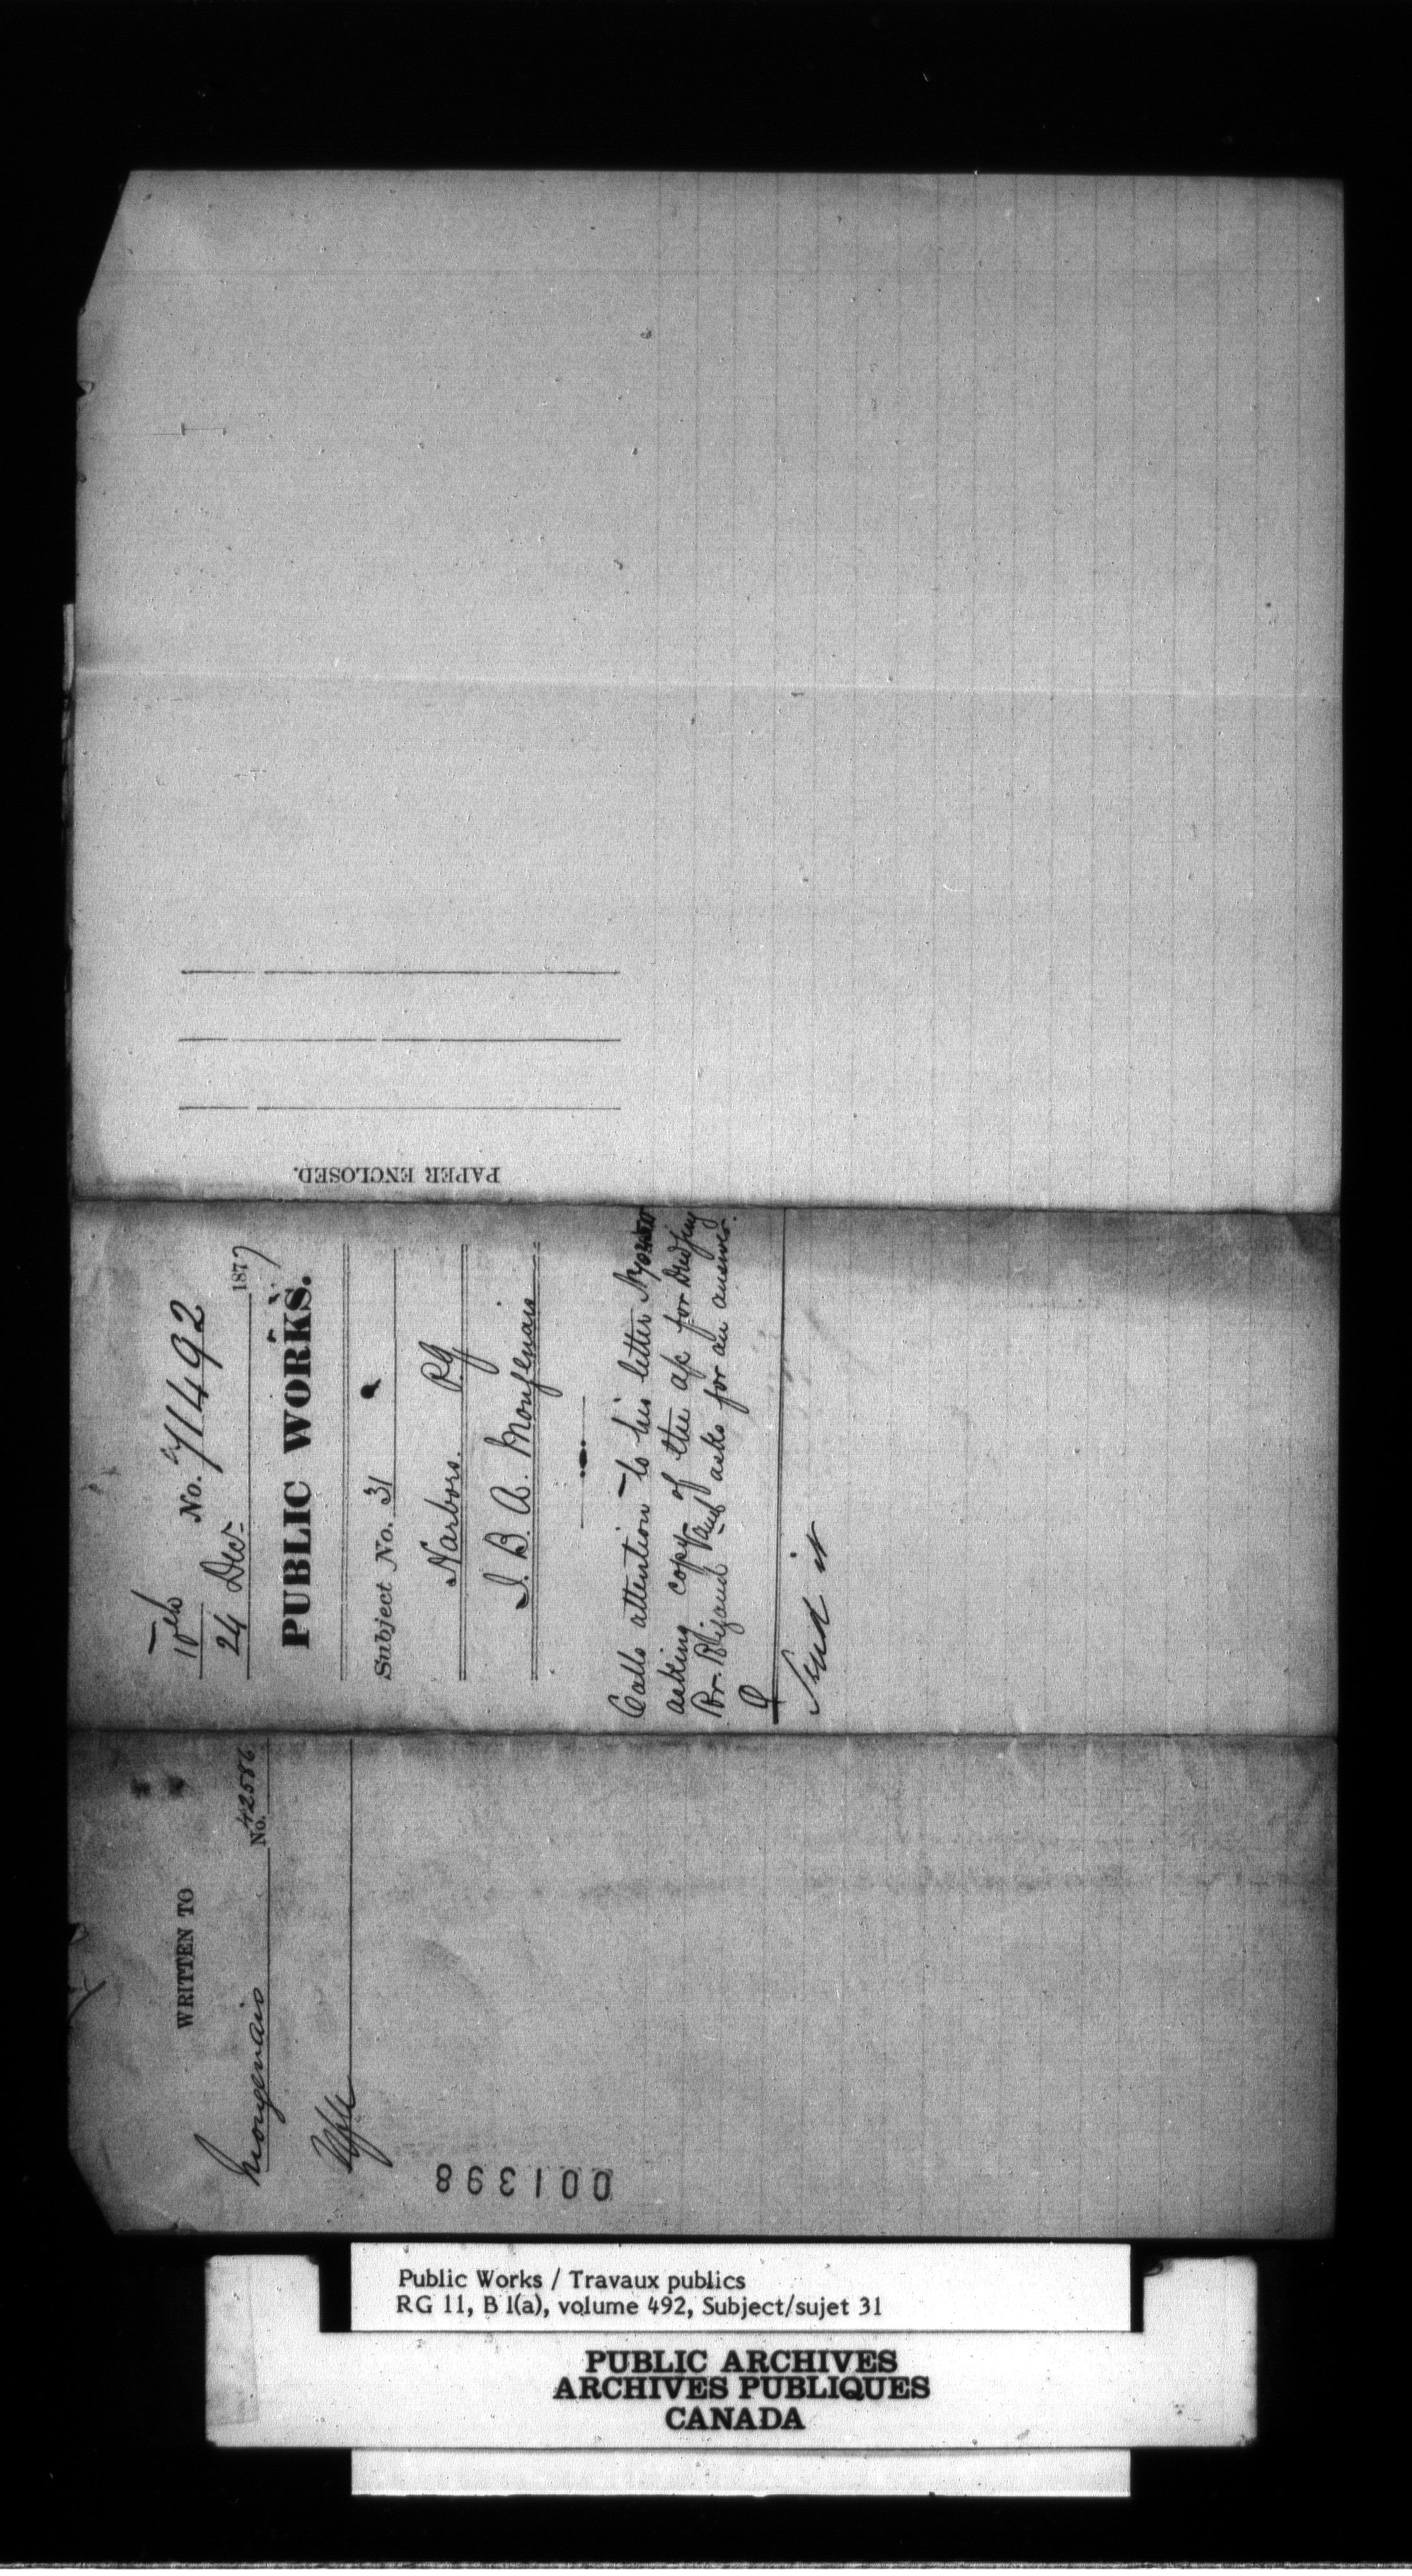 PAPER ENCLOSED.
10th No. 71492
24 Dec. 1877
PUBLIC WORKS.
Subject No. 31
Harbors. P.Q
J. B. A. Mongenais
Calls attention to his letter
asking copy of the a/c for Dredging
and asks for an answer.
Send it
WRITTEN TO
Mongenais No. 42586
001398
Public Works / Travaux publics
RG 11, B 1(a), volume 492, Subject/sujet 31
PUBLIC ARCHIVES
ARCHIVES PUBLIQUES
CANADA